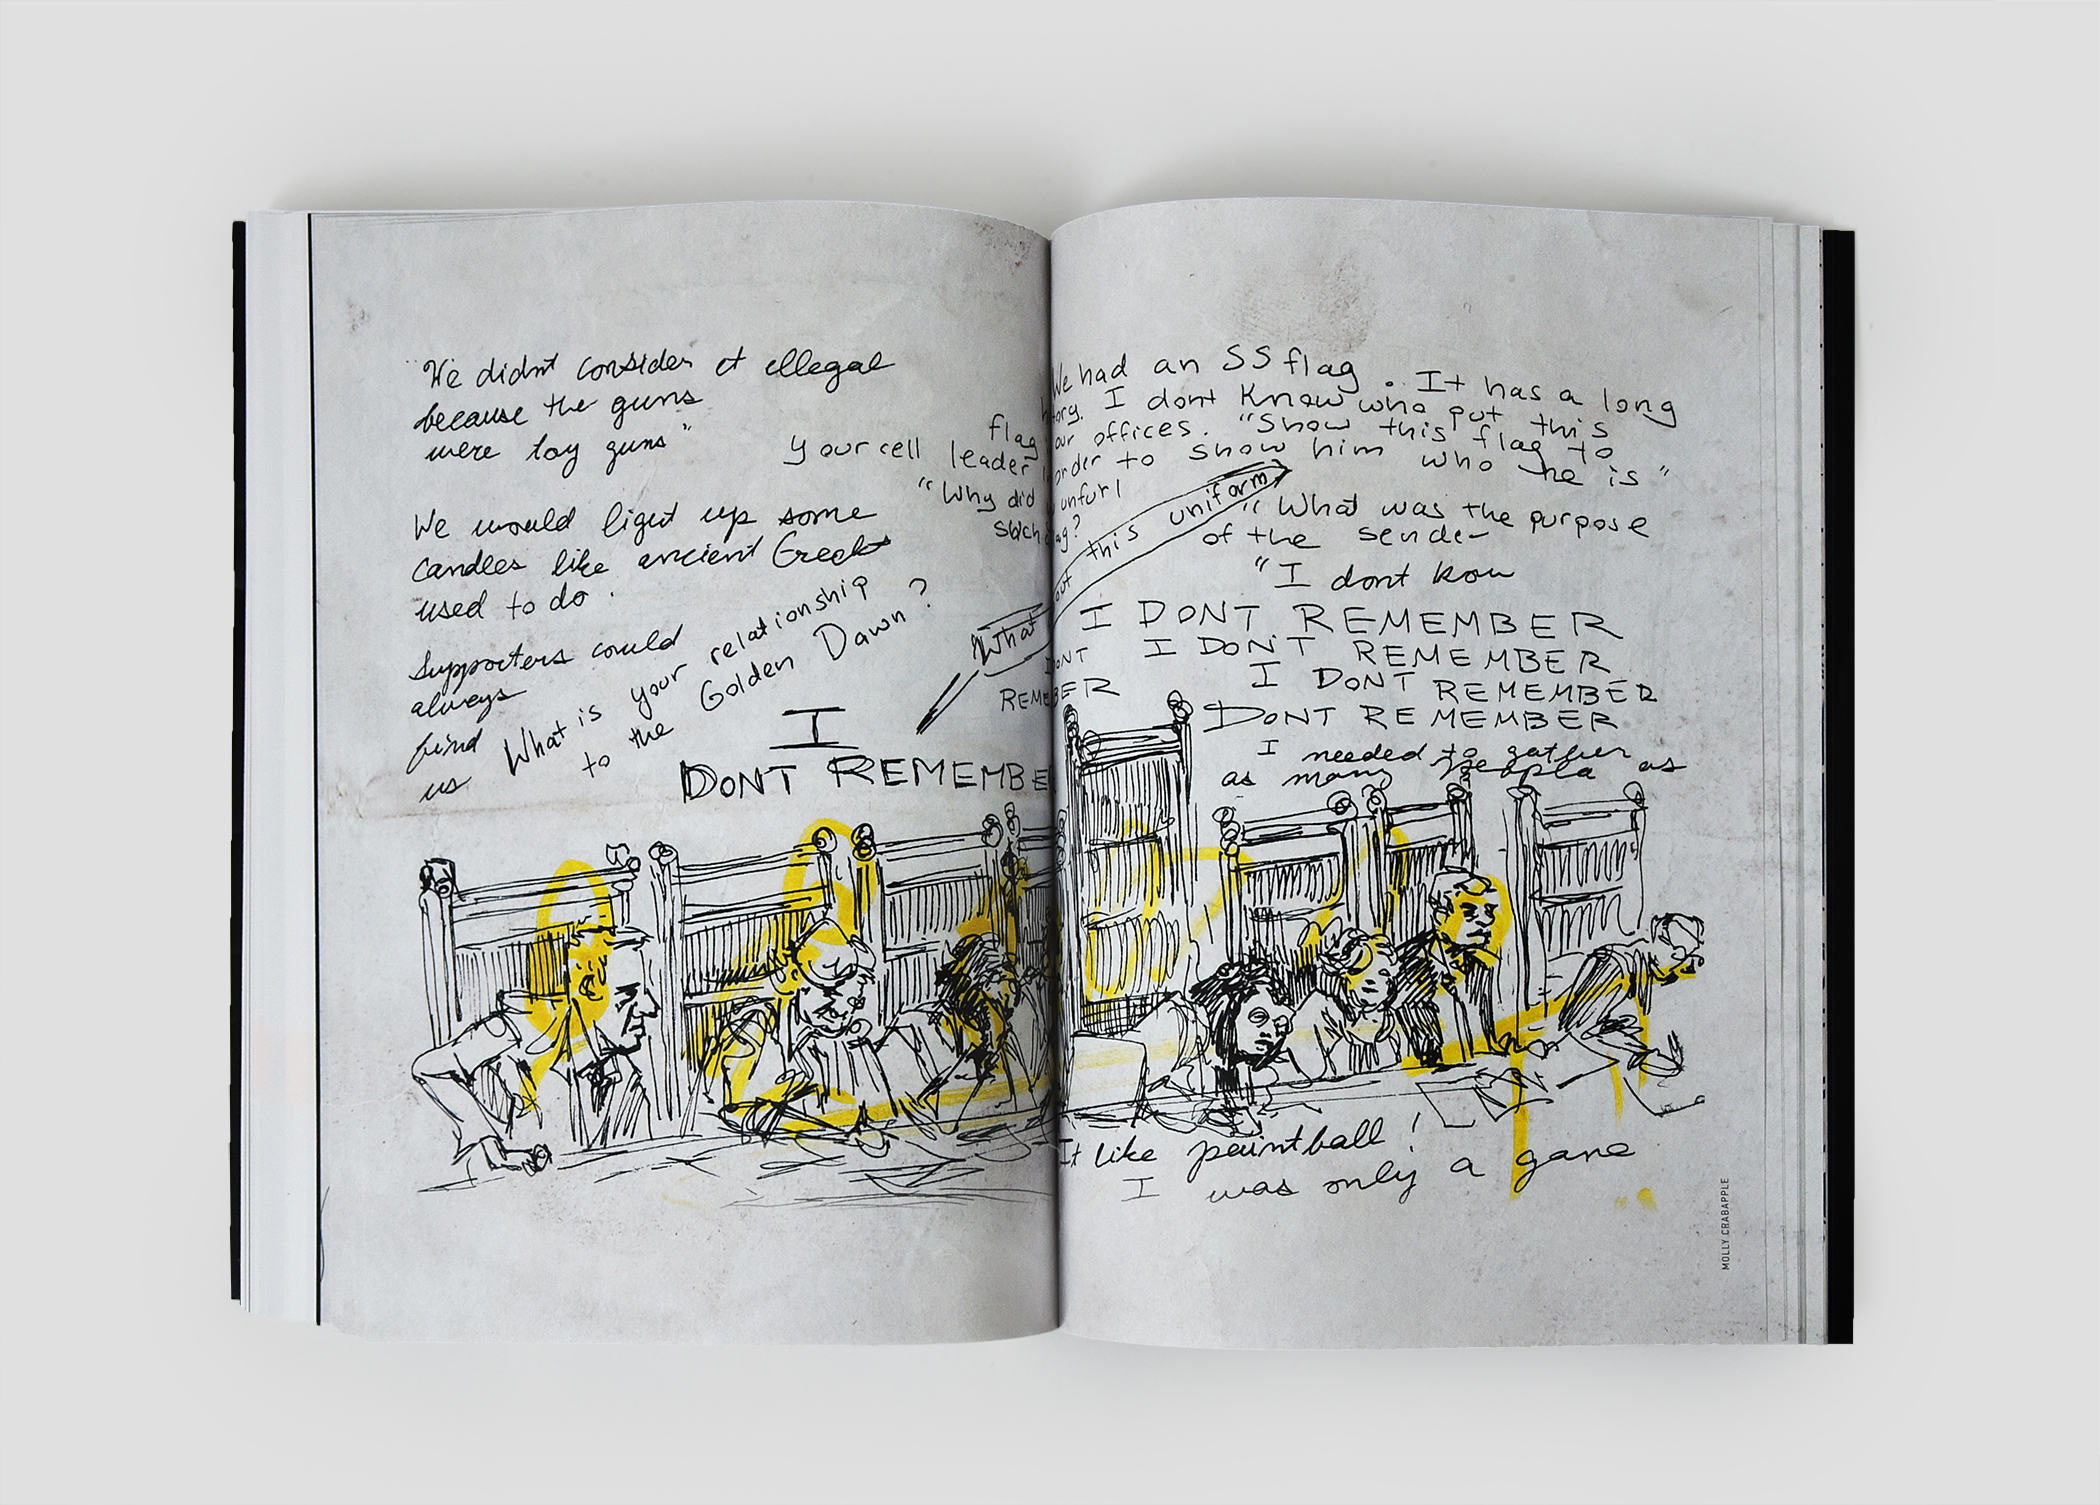 "We didnt consider it illegal
because the guns
were toy guns"
We would light up some
candles like ancient Greeks
used to do.
Supporters could
always
find
us
What is your relationship
to the Golden Dawn?
I
DONT REMEMBE
We had an SS flag. It has a long
tory. I dont Know who put this
flag our offices. "Show this flag to
your cell leader order to show him who he is"
"Why did unfurl
such ag?
What out this uniform
"What was the purpose
of the sende
"I dont kow
I DONT REMEMBER
I DON'T REMEMBER
DONT
REMEBER
I DONT REMEMBER
DONT REMEMBER
I needed to gather
as many people as
It like paintball!
I was only a game
MOLLY CRABAPPLE